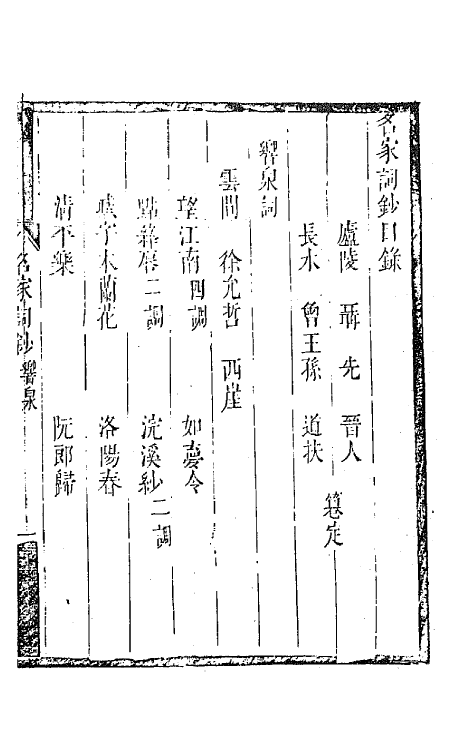 名家詞鈔目錄
廬陵 聶先 晉人
長水 曾王孫 道扶
篹定
響泉詞
雲間 徐允哲 西崖
望江南四調 如夢令
點絳唇二調 浣溪紗二調
減字木蘭花 洛陽春
清平樂 阮郎歸
名家詞鈔 響泉 一